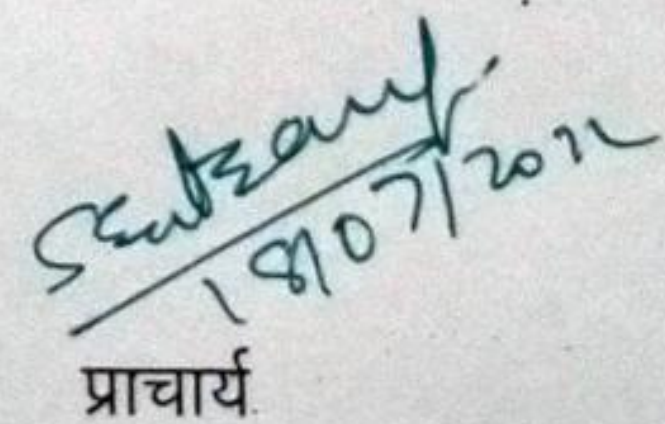 18/07/2022
प्राचार्य